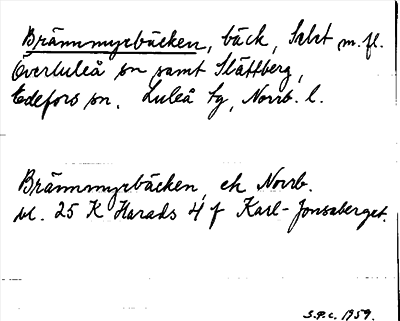 Brännmyrbäcken, bäck, Salst m.fl.
Överluleå sn samt Slättberg,
Edefors sn, Luleå tg, Norrb. l.
Brännmyrbäcken ek Norrb.
bl. 25 K Harads 4 f Karl-Jonsaberget.
S.P.C. 1959.